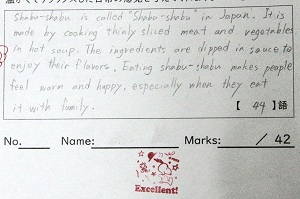 Shabu-shabu is called "Shabu-shabu in Japan. It is
made by cooking thinly sliced meat and vegetables
in hot soup. The ingredients are dipped in sauce to
enjoy their flavors. Eating shabu-shabu makes people
feel warm and happy, especially when they eat
it with family.
【 44 】語
No. Name: Marks: / 42
Excellent!